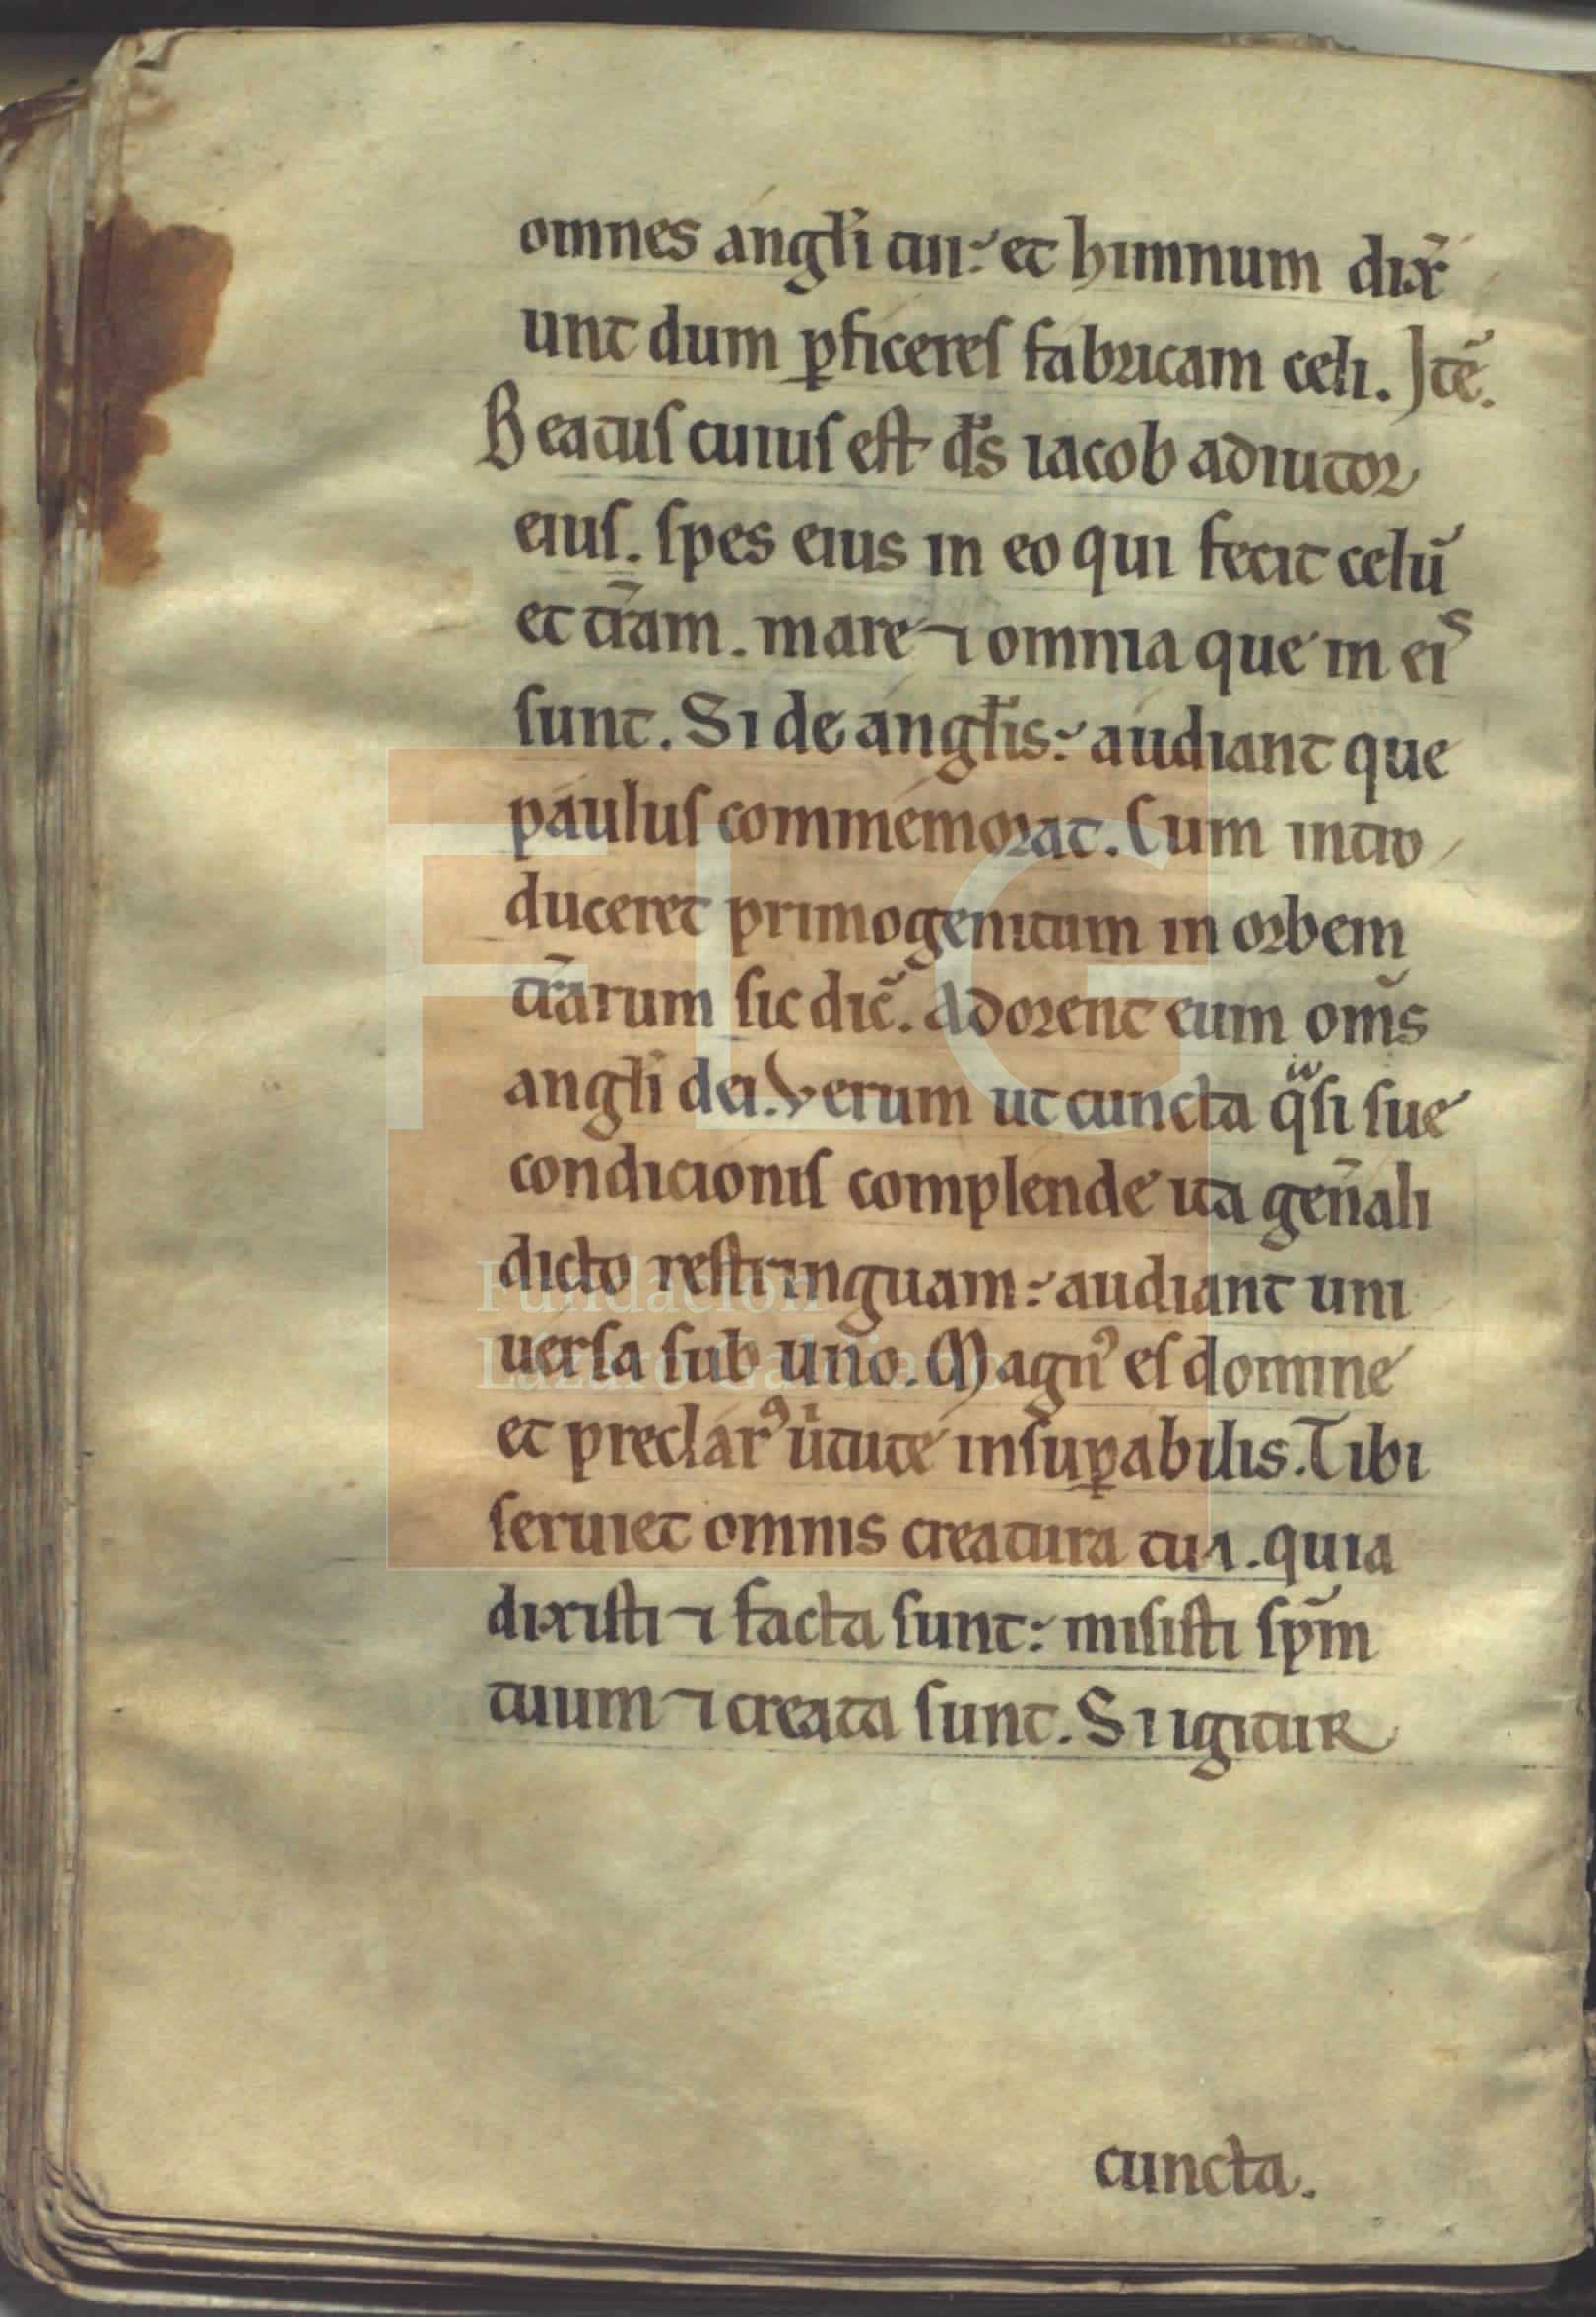 omnes angłi tui: et himnum dix̄
unt dum ꝑficeres fabricam celi. Itē.
Beatus cuius est d̄s iacob adiutor
eius. spes eius in eo qui fecit celū
et tr̄am. mare ⁊ omnia que in eis
sunt. Si de angłis: audiant que
paulus commemorat. Cum intro
duceret primogenitum in orbem
tr̄arum sic dic̄. Adorent eum om̄s
angłi dei. Verum ut cuncta qͣsi sue
condicionis complende ita gen̄ali
dicto restringuam: audiant uni
uersa sub uno. Magnꝰ es domine
et preclarꝰ uͥtute insuꝑabilis. Tibi
seruiet omnis creatura tua. quia
dixisti ⁊ facta sunt: misisti sp̄m
tuum ⁊ creata sunt. Si igitur
cuncta.
FLG
Fundación
Lázaro Galdiano